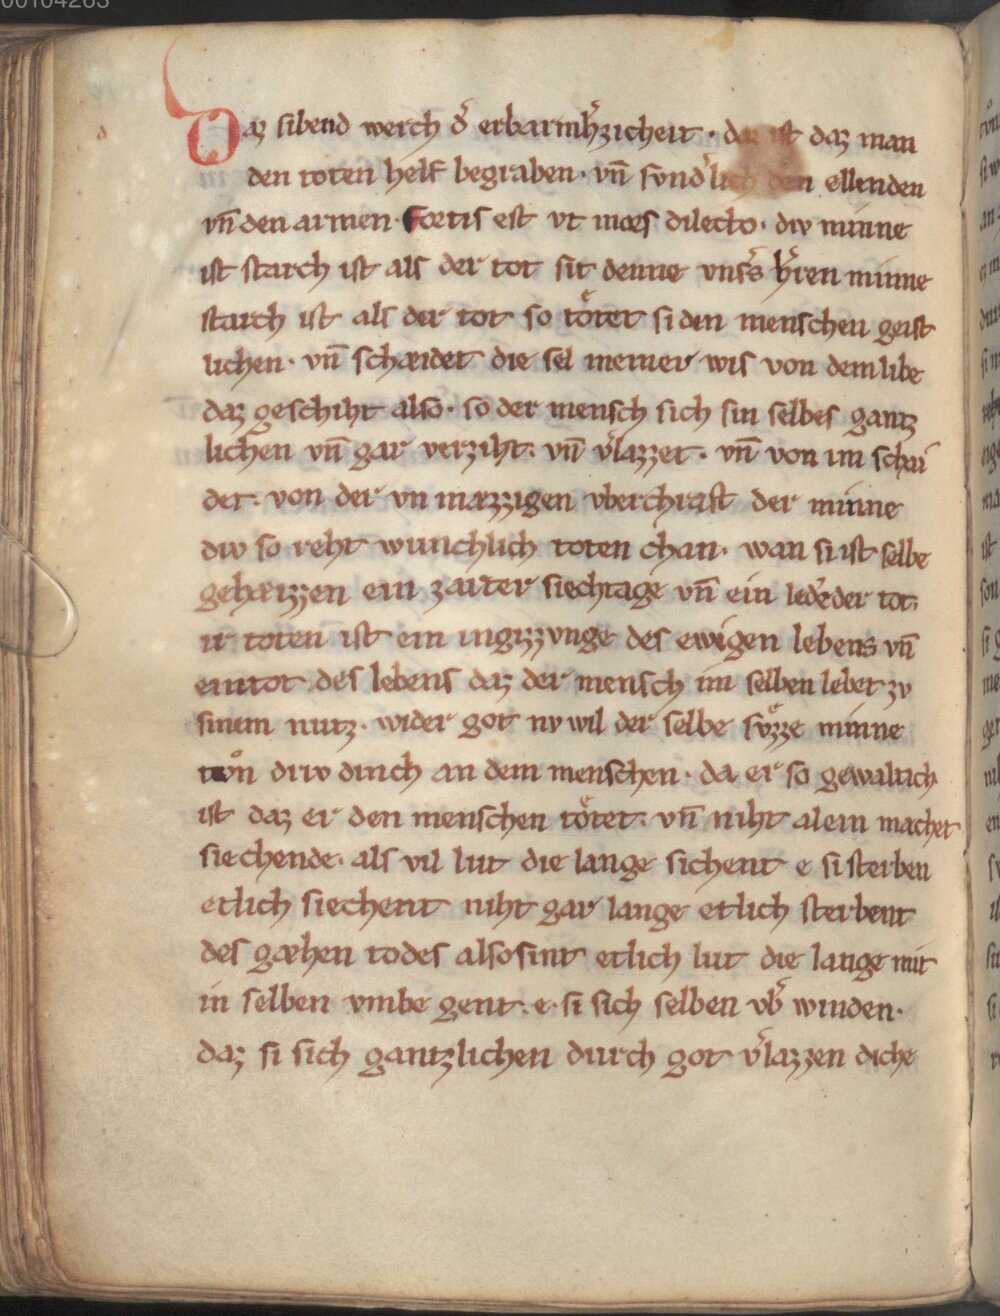 00104263
Daz sibend werch dˀ erbarmhˀzicheit · daz ist daz man
den toten helf begraben · vn̄ svndˀlich den ellenden
vn̄ den armen · Fortis est vt mors dilectio · div minne
ist starch ist als der tot sit denne vnsˀs hˀren minne
starch ist als der tot so toͤtet si den menschen geist
lichen · vn̄ schæidet die sel in einer wis von dem libe
daz geschiht also · so der mensch sich sin selbes gantz
lichen vn̄ gar verziht · vn̄ vˀlazzet · vn̄ von im schæi
det · von der vn mæzzigen vberchraft der minne
div so reht wunchlich toten chan · wan si ist selbe
gehæizzen ein zarter siechtage vn̄ ein lebēder tot ·
ir toten ist ein ingizzvnge des ewigen lebens vn̄
ein tot des lebens daz der mensch im selben lebet zv
sinem nutz · wider got nv wil der selbe svͤzze minne
tvͦn driv dinch an dem menschen · da er so gewaltich
ist daz er den menschen toͤtet · vn̄ niht alein machet
siechende · als vil lut die lange sichent e si sterben
etlich siechent niht gar lange etlich sterbent
des gæhen todes also sint etlich lut die lange mit
in selben vmbe gent · e · si sich selben vbˀ winden ·
daz si sich gantzlichen durch got vˀlazzen diche